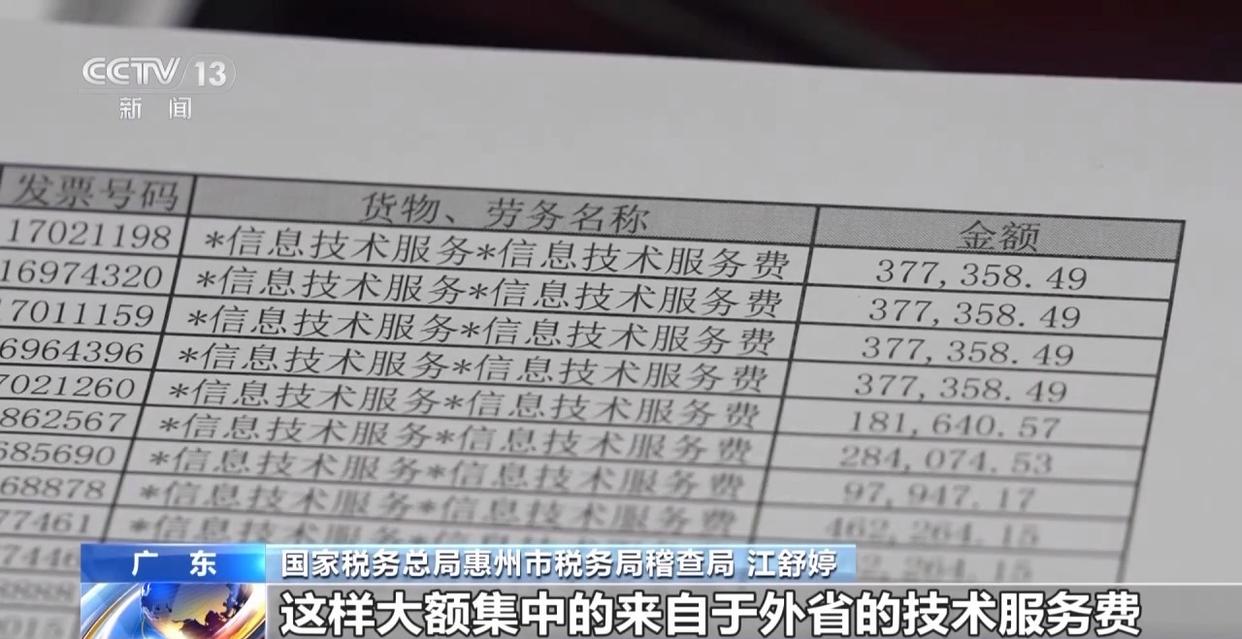 CCTV 13
新闻
发票号码 货物、劳务名称 金额
17021198 *信息技术服务*信息技术服务费 377,358.49
16974320 *信息技术服务*信息技术服务费 377,358.49
7011159 *信息技术服务*信息技术服务费 377,358.49
6964396 *信息技术服务*信息技术服务费 377,358.49
7021260 *信息技术服务*信息技术服务费 181,640.57
862567 *信息技术服务*信息技术服务费 284,074.53
685690 *信息技术服务*信息技术服务费 97,947.17
68878 *信息技术服务*信息技术服务费 462,264.15
77461 *信息技术服务
广东 国家税务总局惠州市税务局稽查局 江舒婷
这样大额集中的来自于外省的技术服务费